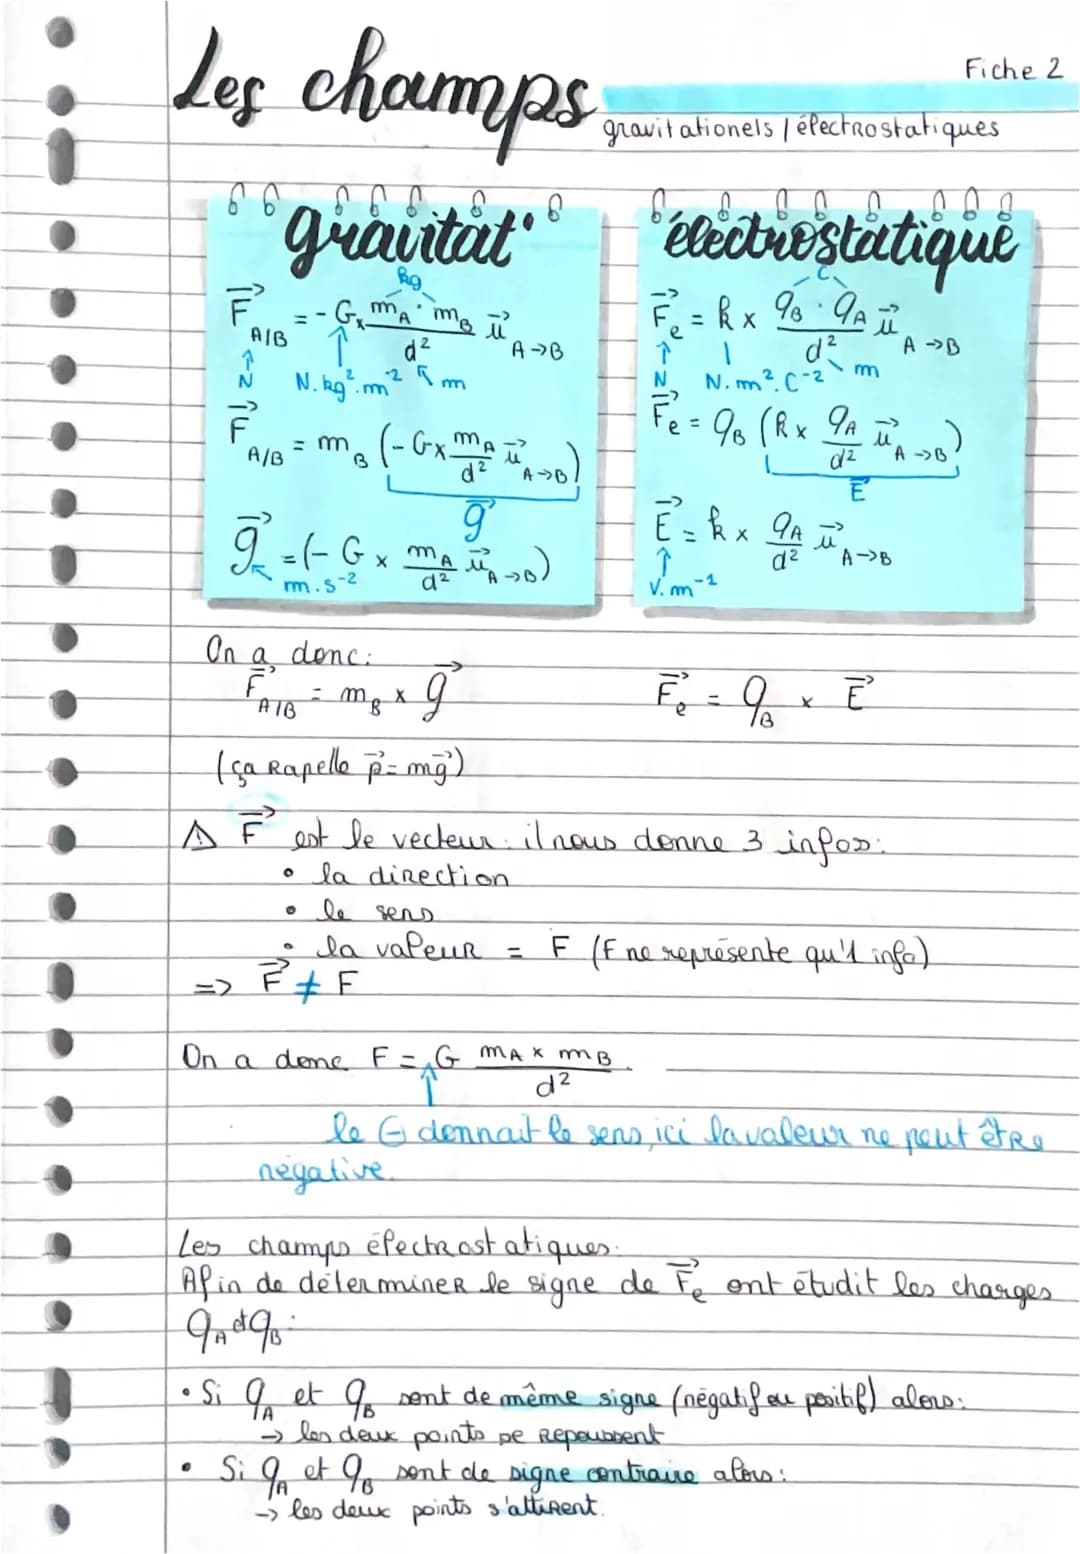 Les champs
Fiche 2
gravitationels / électrostatiques
gravitat°
kg
F⃗ A/B = - G x mA · mB / d² u⃗ A→B
N N.kg².m⁻² m
F⃗ A/B = mB (- G x mA / d² u⃗ A→B)
g⃗
g⃗ = (- G x mA / d² u⃗ A→B)
m.s⁻²
électrostatique
C
F⃗e = k x qB · qA / d² u⃗ A→B
N N.m².C⁻² m
F⃗e = qB (k x qA / d² u⃗ A→B)
E⃗
E⃗ = k x qA / d² u⃗ A→B
V.m⁻¹
On a donc:
F⃗ A/B = mB x g⃗
F⃗e = qB x E⃗
(ça Rapelle p⃗ = mg⃗)
⚠ F⃗ est le vecteur : il nous donne 3 infos:
• la direction
• le sens
• la valeur = F (F ne représente qu'1 info)
=> F⃗ ≠ F
On a donc F = G mA x mB / d².
le ⊖ donnait le sens, ici la valeur ne peut être
négative.
Les champs électrostatiques:
Afin de déterminer le signe de F⃗e ont étudit les charges
qA et qB:
• Si qA et qB sont de même signe (négatif ou positif) alors:
→ les deux points se repoussent
• Si qA et qB sont de signe contraire alors:
→ les deux points s'attirent.